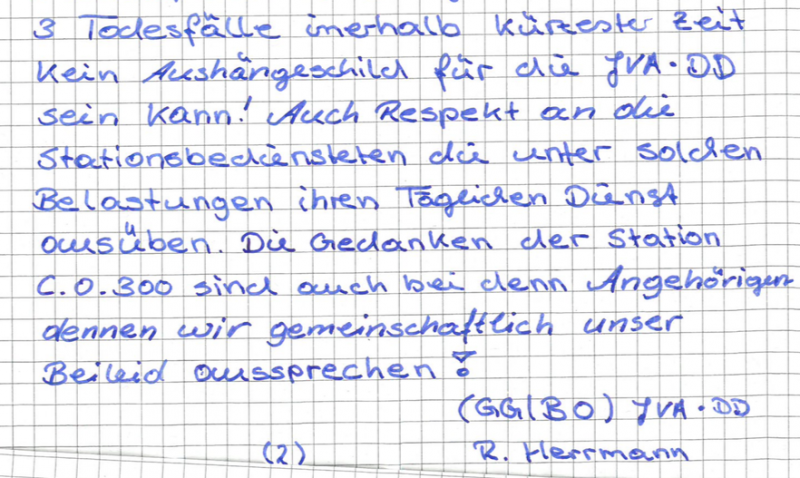 3 Todesfälle innerhalb kürzester Zeit
Kein Aushängeschild für die JVA·DD
sein kann! Auch Respekt an die
Stationsbediensteten die unter solchen
Belastungen ihren Täglichen Dienst
ausüben. Die Gedanken der Station
C.O.300 sind auch bei denn Angehörigen
dennen wir gemeinschaftlich unser
Beileid aussprechen!
(GG/BO) JVA·DD
(2) R. Herrmann